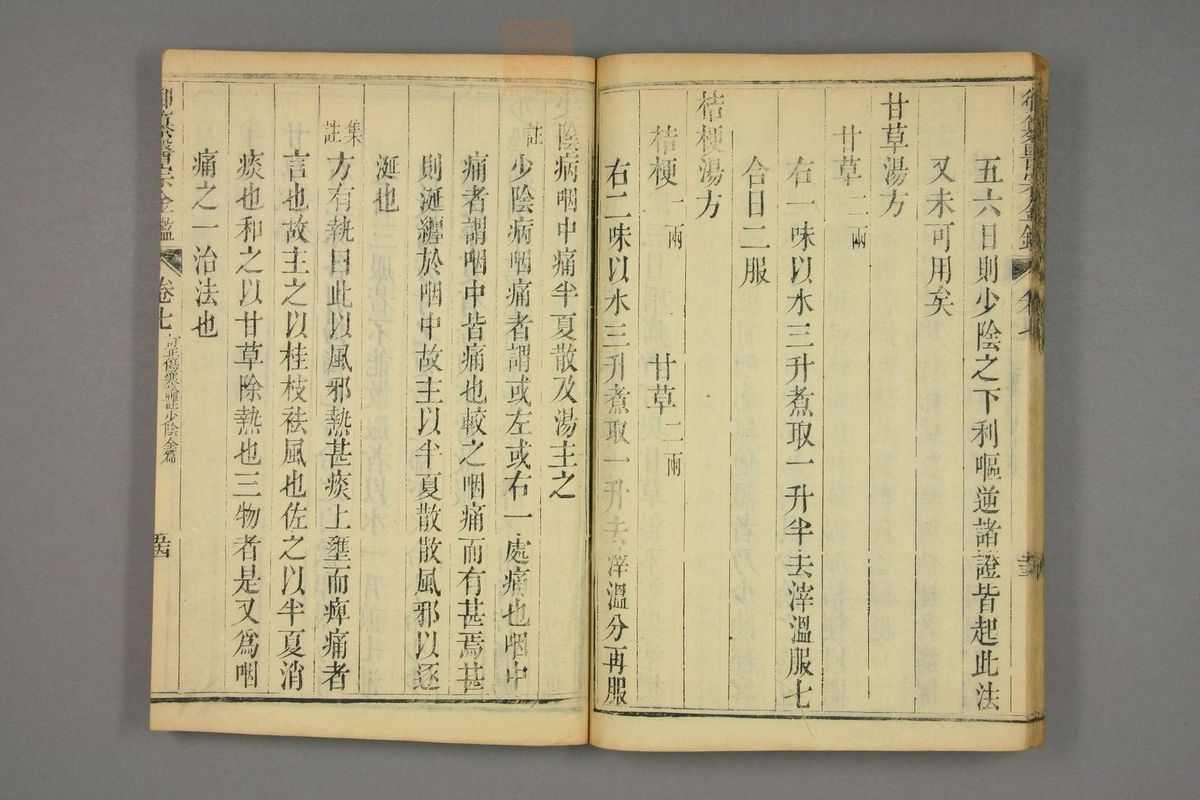 五六日則少陰之下利嘔逆諸證皆起此法
又未可用矣
甘草湯方
甘草二兩
右一味以水三升煮取一升半去滓溫服七
合日二服
桔梗湯方
桔梗一兩 甘草二兩
右二味以水三升煮取一升去滓溫分再服
少陰病咽中痛半夏散及湯主之
註少陰病咽痛者謂或左或右一處痛也咽中
痛者謂咽中皆痛也較之咽痛而有甚焉甚
則涎纏於咽中故主以半夏散散風邪以逐
涎也
集註方有執曰此以風邪熱甚痰上壅而痺痛者
言也故主之以桂枝祛風也佐之以半夏消
痰也和之以甘草除熱也三物者是又爲咽
痛之一治法也
御纂醫宗金鑑 卷七 訂正傷寒論註少陰全篇 五四